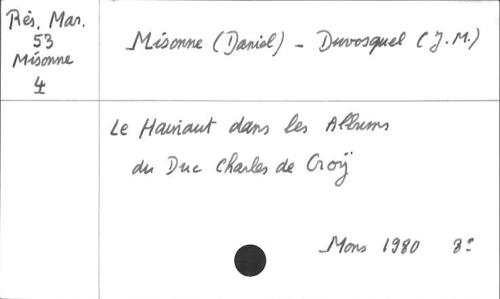 Rés. Mar.
53
Misonne
4
Misonne (Daniel) - Duvosquel (J.M.)
Le Hainaut dans les Albums
du Duc Charles de Croÿ
Mons 1980 8°